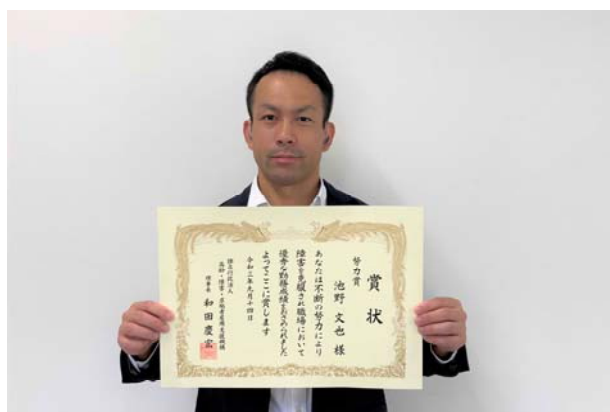 賞状
努力賞
池野文也様
あなたは不断の努力により
障害を克服され職場において
優秀な勤務成績をおさめられました
よってここに賞します
令和三年九月十四日
独立行政法人
高齢・障害・求職者雇用支援機構
理事長 和田慶宏